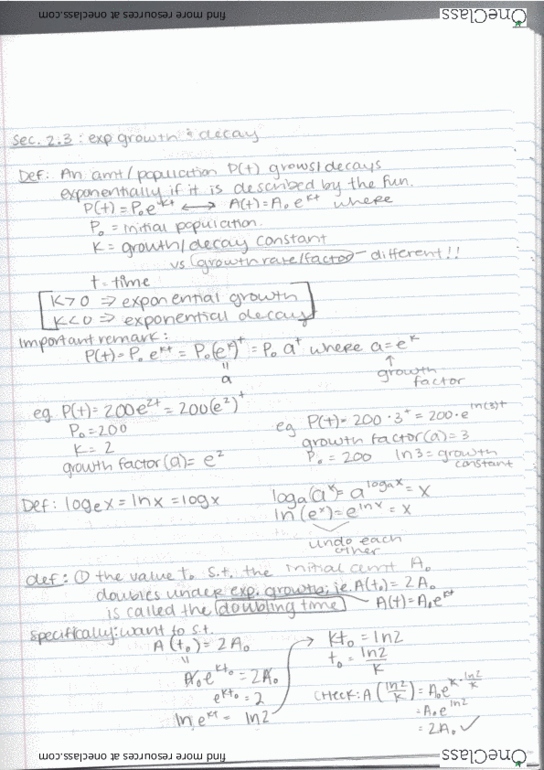 find more resources at oneclass.com
OneClass
Sec. 2.3 : exp growth & decay
Def: An amt/population P(t) grows/decays
exponentially if it is described by the fun.
P(t) = P₀e^kt ⟷ A(t) = A₀e^kt where
P₀ = initial population.
K = growth/decay constant
vs growth rate/factor - different!!
t - time
K>0 ⇒ exponential growth
K<0 ⇒ exponential decay
Important remark:
P(t) = P₀ e^kt = P₀(e^k)^t = P₀ a^t where a = e^k
a
↑
growth
factor
eg P(t) = 200e^2t = 200(e²)^t
P₀ = 200
K = 2
growth factor (a) = e²
eg P(t) = 200 · 3^t = 200 · e^ln(3)t
growth factor (a) = 3
P₀ = 200 ln3 = growth
constant
Def: logₑx = lnx = logx
logₐ(a^x) = a^logₐx = x
ln(e^x) = e^lnx = x
undo each
other
def: ① the value t₀ s.t. the initial amt A₀
doubles under exp. growth; ie. A(t₀) = 2A₀
is called the doubling time
A(t) = A₀e^kt
specifically: want to s.t.
A(t₀) = 2A₀
"
A₀e^kt₀ = 2A₀
e^kt₀ = 2
ln e^kt = ln2
→ Kt₀ = ln2
t₀ = ln2/K
CHECK: A(ln2/K) = A₀e^K·ln2/K
= A₀e^ln2
= 2A₀ ✓
find more resources at oneclass.com
OneClass